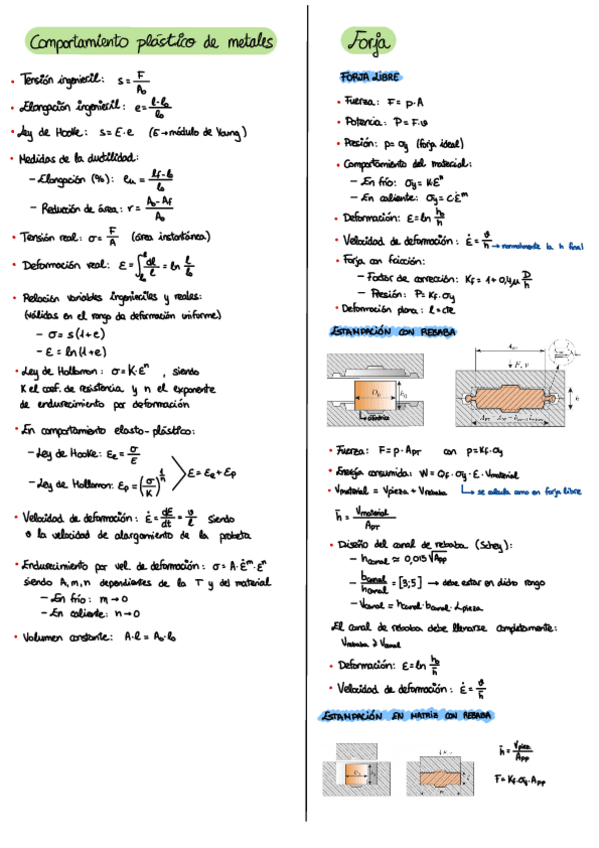 Comportamiento plástico de metales
• Tensión ingenieril: s = F/A₀
• Elongación ingenieril: e = (l-l₀)/l₀
• Ley de Hooke: s = E·e (E→módulo de Young)
• Medidas de la ductilidad:
– Elongación (%): eᵤ = (lf-l₀)/l₀
– Reducción de área: r = (A₀-Af)/A₀
• Tensión real: σ = F/A (área instantánea)
• Deformación real: ε = ∫ dl/l = ln l/l₀
• Relación variables ingenieriles y reales:
(válidas en el rango de deformación uniforme)
– σ = s(1+e)
– ε = ln(1+e)
• Ley de Hollomon: σ = K·εⁿ, siendo
K el coef. de resistencia y n el exponente
de endurecimiento por deformación
• En comportamiento elasto-plástico:
– Ley de Hooke: εe = σ/E
– Ley de Hollomon: εp = (σ/K)^(1/n)
ε = εe + εp
• Velocidad de deformación: ε̇ = dε/dt = v/l siendo
v la velocidad de alargamiento de la probeta
• Endurecimiento por vel. de deformación: σ = A·ε̇ᵐ·εⁿ
siendo A, m, n dependientes de la T y del material
– En frío: m→0
– En caliente: n→0
• Volumen constante: A·l = A₀·l₀
Forja
FORJA LIBRE
• Fuerza: F = p·A
• Potencia: P = F·v
• Presión: p = σy (forja ideal)
• Comportamiento del material:
– En frío: σy = K·εⁿ
– En caliente: σy = C·ε̇ᵐ
• Deformación: ε = ln h₀/h
• Velocidad de deformación: ε̇ = v/h → normalmente la h final
• Forja con fricción:
– Factor de corrección: Kf = 1 + 0,4μ D/h
– Presión: P = Kf·σy
• Deformación plana: l = cte
ESTAMPACIÓN CON REBABA
F, v
• Fuerza: F = p·APT con p = Kf·σy
• Energía consumida: W = Qf·σy·ε·Vmaterial
• Vmaterial = Vpieza + Vrebaba
↳ se calcula como en forja libre
h̄ = Vmaterial/APT
• Diseño del canal de rebaba (Schey):
– hcanal ≈ 0,015√APP
– bcanal/hcanal = [3;5] → debe estar en dicho rango
– Vcanal = hcanal·bcanal·Lpieza
El canal de rebaba debe llenarse completamente:
Vrebaba ≥ Vcanal
• Deformación: ε = ln h₀/h̄
• Velocidad de deformación: ε̇ = v/h̄
ESTAMPACIÓN EN MATRIZ CON REBABA
h̄ = Vpieza/APP
F = Kf·σy·APP